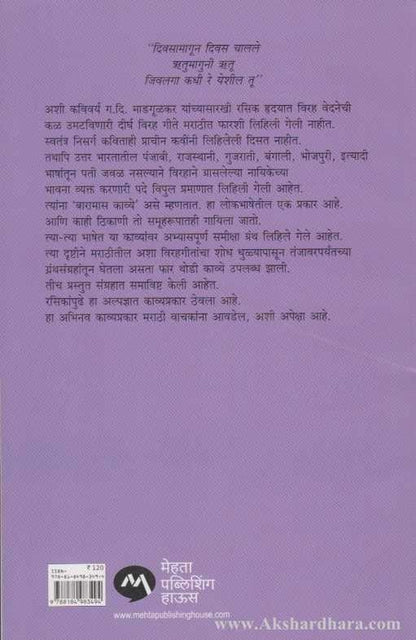 "दिवसामागून दिवस चालले
ऋतुमागुनी ऋतू
जिवलगा कधी रे येशील तू"
अशी कविवर्य ग.दि. माडगूळकर यांच्यासारखी रसिक हृदयात विरह वेदनेची
कळ उमटविणारी दीर्घ विरह गीते मराठीत फारशी लिहिली गेली नाहीत.
स्वतंत्र निसर्ग कविताही प्राचीन कवींनी लिहिलेली दिसत नाहीत.
तथापि उत्तर भारतातील पंजाबी, राजस्थानी, गुजराती, बंगाली, भोजपुरी, इत्यादी
भाषांतून पती जवळ नसल्याने विरहाने ग्रासलेल्या नायिकेच्या
भावना व्यक्त करणारी पदे विपुल प्रमाणात लिहिली गेली आहेत.
त्यांना 'बारामास काव्ये' असे म्हणतात. हा लोकभाषेतील एक प्रकार आहे.
आणि काही ठिकाणी तो समूहरूपातही गायिला जातो.
त्या-त्या भाषेत या काव्यांवर अभ्यासपूर्ण समीक्षा ग्रंथ लिहिले गेले आहेत.
त्या दृष्टीने मराठीतील अशा विरहगीतांचा शोध धुळ्यापासून तंजावरपर्यंतच्या
ग्रंथसंग्रहांतून घेतला असता फार थोडी काव्ये उपलब्ध झाली.
तीच प्रस्तुत संग्रहात समाविष्ट केली आहेत.
रसिकांपुढे हा अल्पज्ञात काव्यप्रकार ठेवला आहे.
हा अभिनव काव्यप्रकार मराठी वाचकांना आवडेल, अशी अपेक्षा आहे.
ISBN- ₹ 120
मेहता
पब्लिशिंग
हाऊस
www.mehtapublishinghouse.com
www.Akshardhara.com